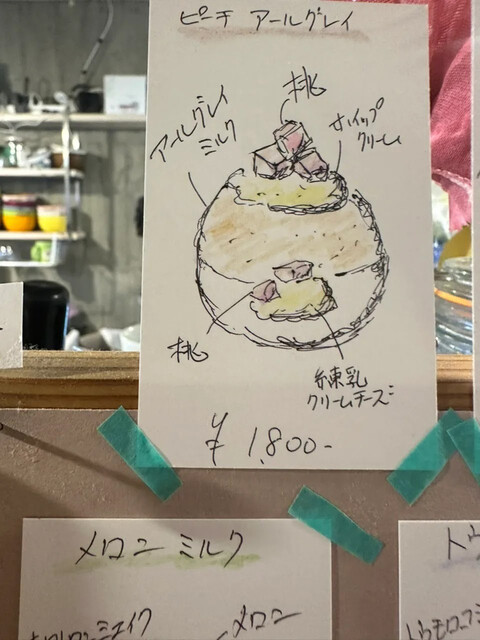 ピーチ アールグレイ
桃
アールグレイ
ミルク
ホイップ
クリーム
桃
練乳
クリームチーズ
¥1,800-
メロン ミルク
メロン